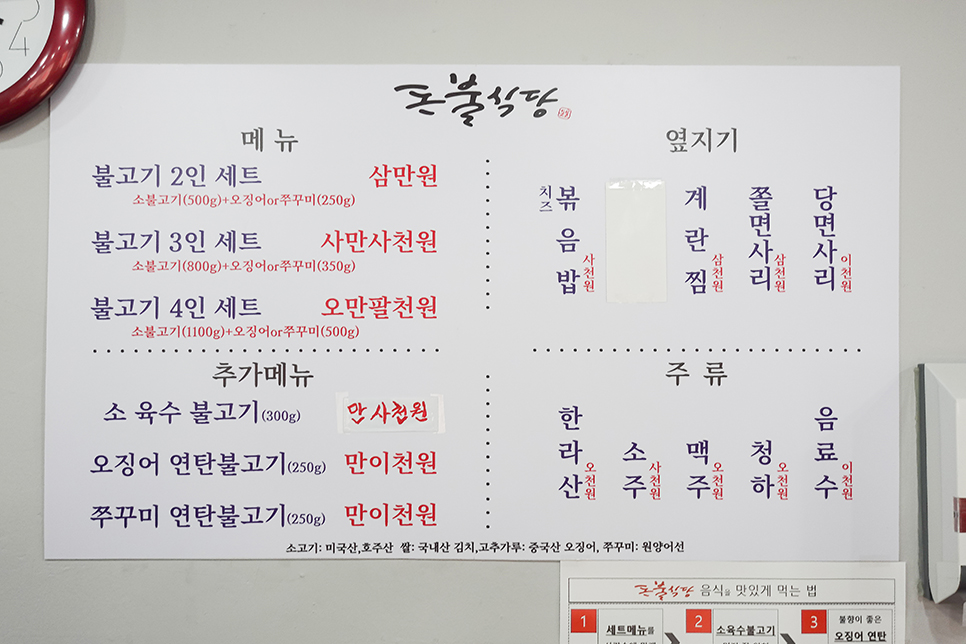 돈불식당
메뉴
불고기 2인 세트 삼만원
소불고기(500g)+오징어or쭈꾸미(250g)
불고기 3인 세트 사만사천원
소불고기(800g)+오징어or쭈꾸미(350g)
불고기 4인 세트 오만팔천원
소불고기(1100g)+오징어or쭈꾸미(500g)
옆지기
치즈볶음밥 사천원
계란찜 삼천원
쫄면사리 삼천원
당면사리 이천원
추가메뉴
소 육수 불고기(300g) 만사천원
오징어 연탄불고기(250g) 만이천원
쭈꾸미 연탄불고기(250g) 만이천원
주류
한라산 오천원
소주 사천원
맥주 오천원
청하 오천원
음료수 이천원
소고기: 미국산,호주산 쌀: 국내산 김치,고추가루: 중국산 오징어, 쭈꾸미: 원양어선
돈불식당 음식을 맛있게 먹는 법
1 세트메뉴를
2 소육수불고기
3 불향이 좋은
오징어 연탄
4